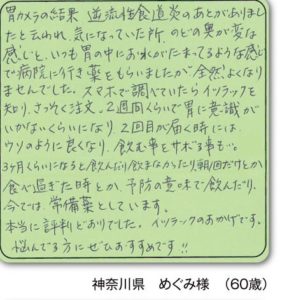 胃カメラの結果 逆流性食道炎のあとがありまし
たと云われ、気になっていた所 のどの奥が変な
感じと、いつも胃の中におわれがたまってるような感じ
で病院に行き薬をもらいましたが全然よくなり
ませんでした。スマホで調べていたらイツラックを
知り、さっそく注文。2週間くらいで胃に意識が
いかないくらいになり、2回目が届く時には、
ウソのように良くなり、飲む事をサボる事も…
3ヶ月くらいになると飲んだり飲まなかったり、朝1回だけとか
食べ過ぎた時とか、予防の意味で飲んだり。
今では、常備薬としています。
本当に評判どおりでした。イツラックのおかげです。
悩んでる方にぜひおすすめです!!
神奈川県 めぐみ様 (60歳)